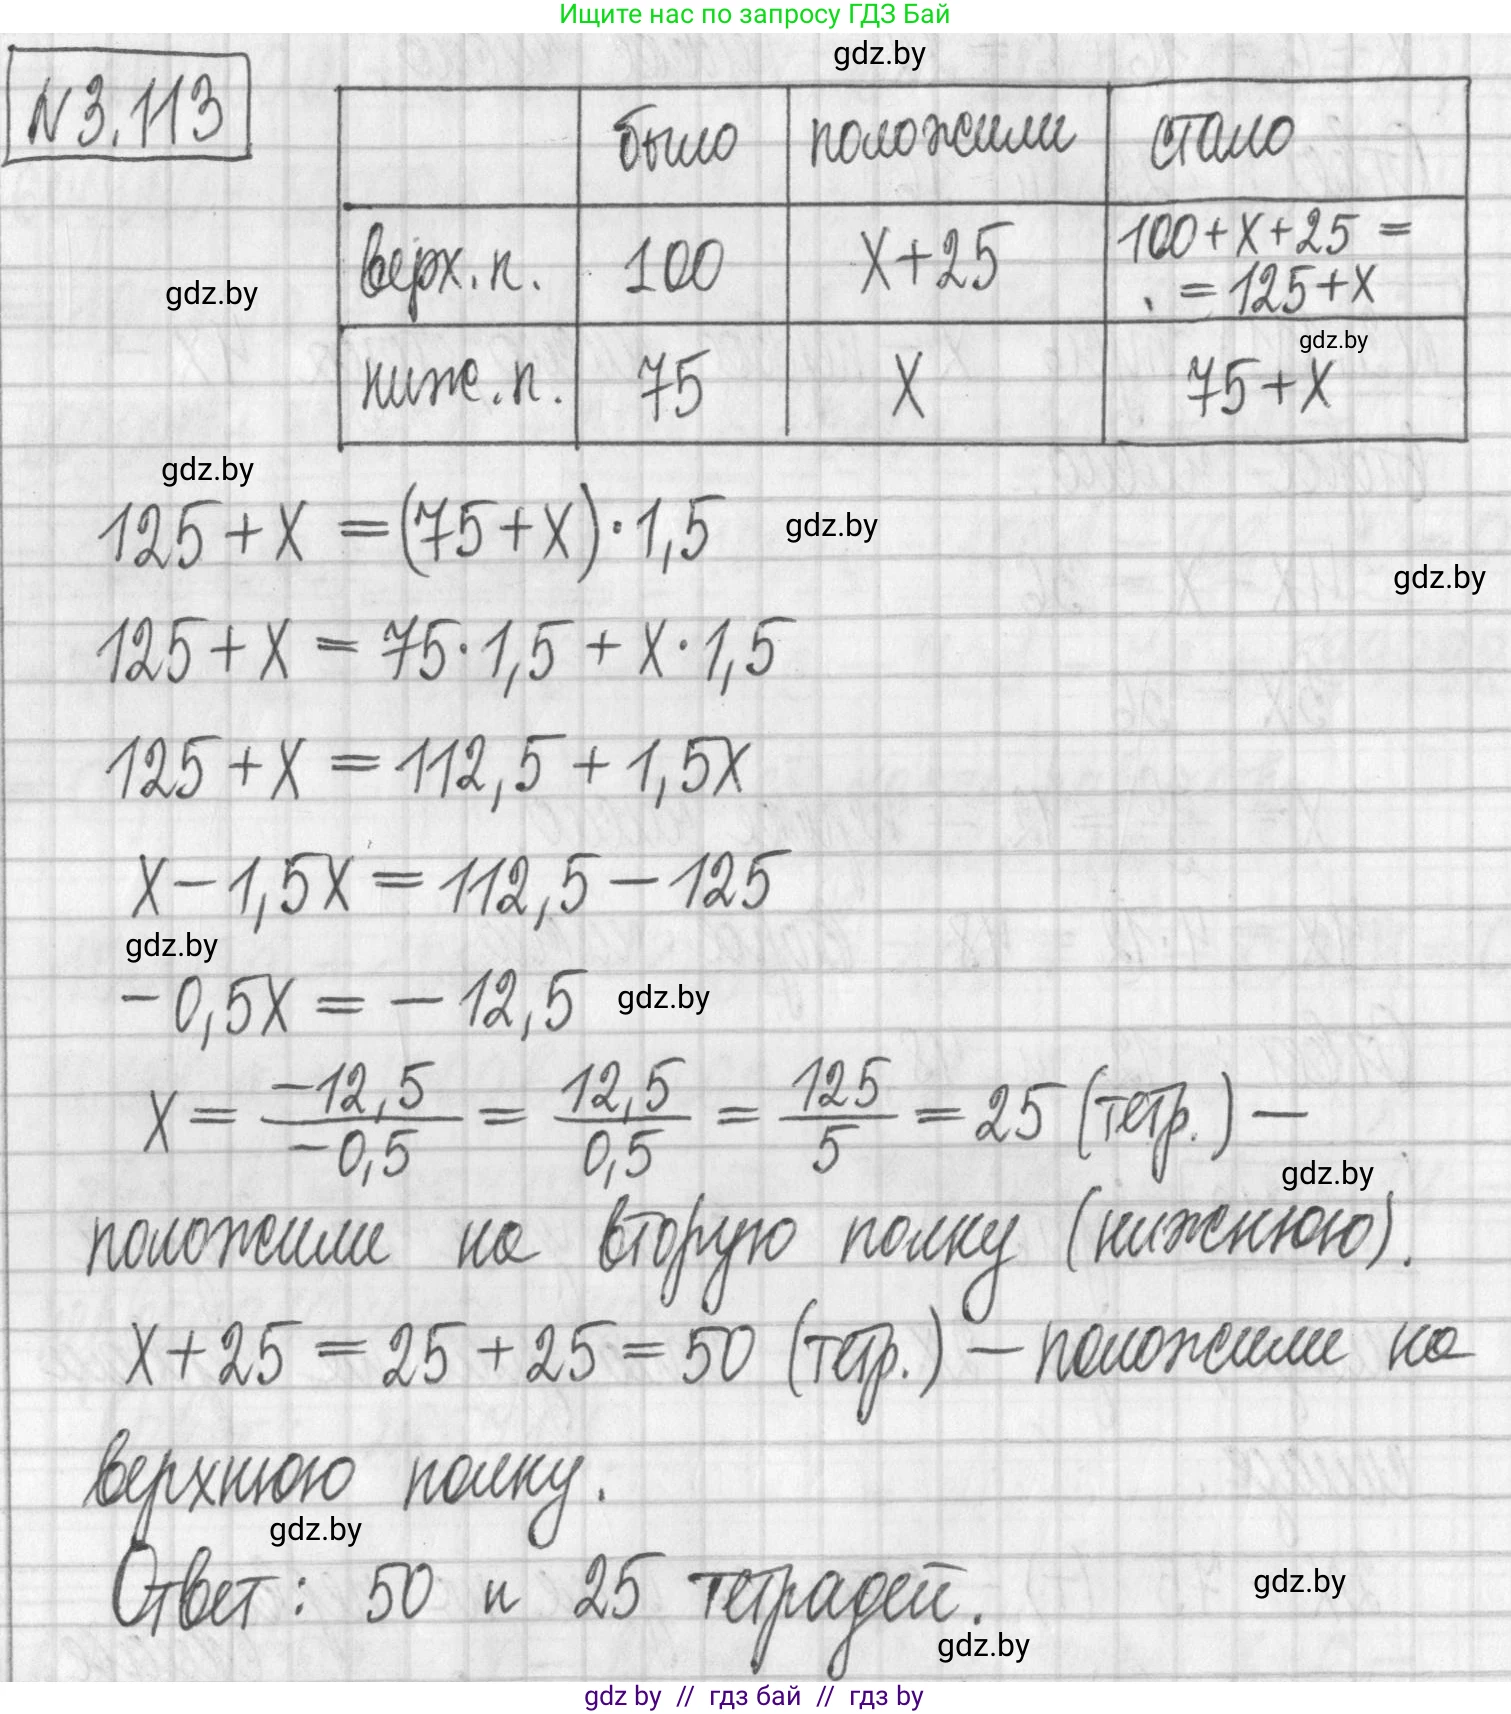 Ищите нас по запросу ГДЗ Бай
gdz.by
N 3.113
было положили стало
верх.п. 100 x+25 100+x+25 =
. = 125+x
gdz.by
gdz.by
ниж.п. 75 x 75+x
gdz.by
125 + x = (75+x) · 1,5
gdz.by
gdz.by
125 + x = 75 · 1,5 + x · 1,5
125 + x = 112,5 + 1,5x
x - 1,5x = 112,5 - 125
gdz.by
-0,5x = - 12,5
gdz.by
x = -12,5/-0,5 = 12,5/0,5 = 125/5 = 25 (тетр.) —
gdz.by
положили на вторую полку (нижнюю).
x + 25 = 25 + 25 = 50 (тетр.) — положили на
верхнюю полку.
gdz.by
Ответ: 50 и 25 тетрадей.
gdz.by
gdz.by
gdz by // гдз бай // гдз by